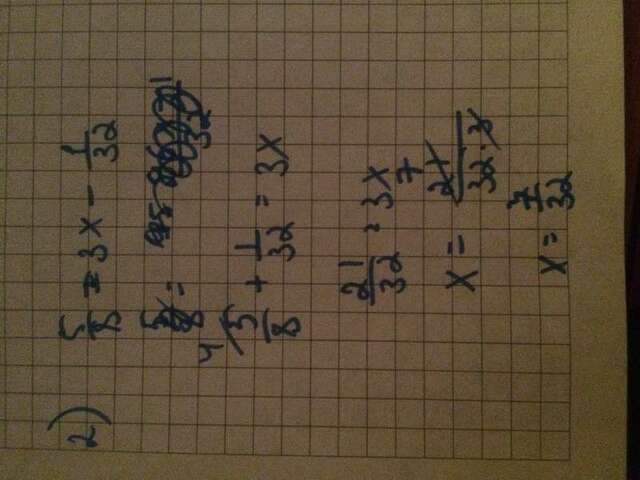 2) 5/8 = 3x - 1/32
5/8 =
4 5/8 + 1/32 = 3x
21/32 = 3x
x = 21/32·3 7
x = 7/32